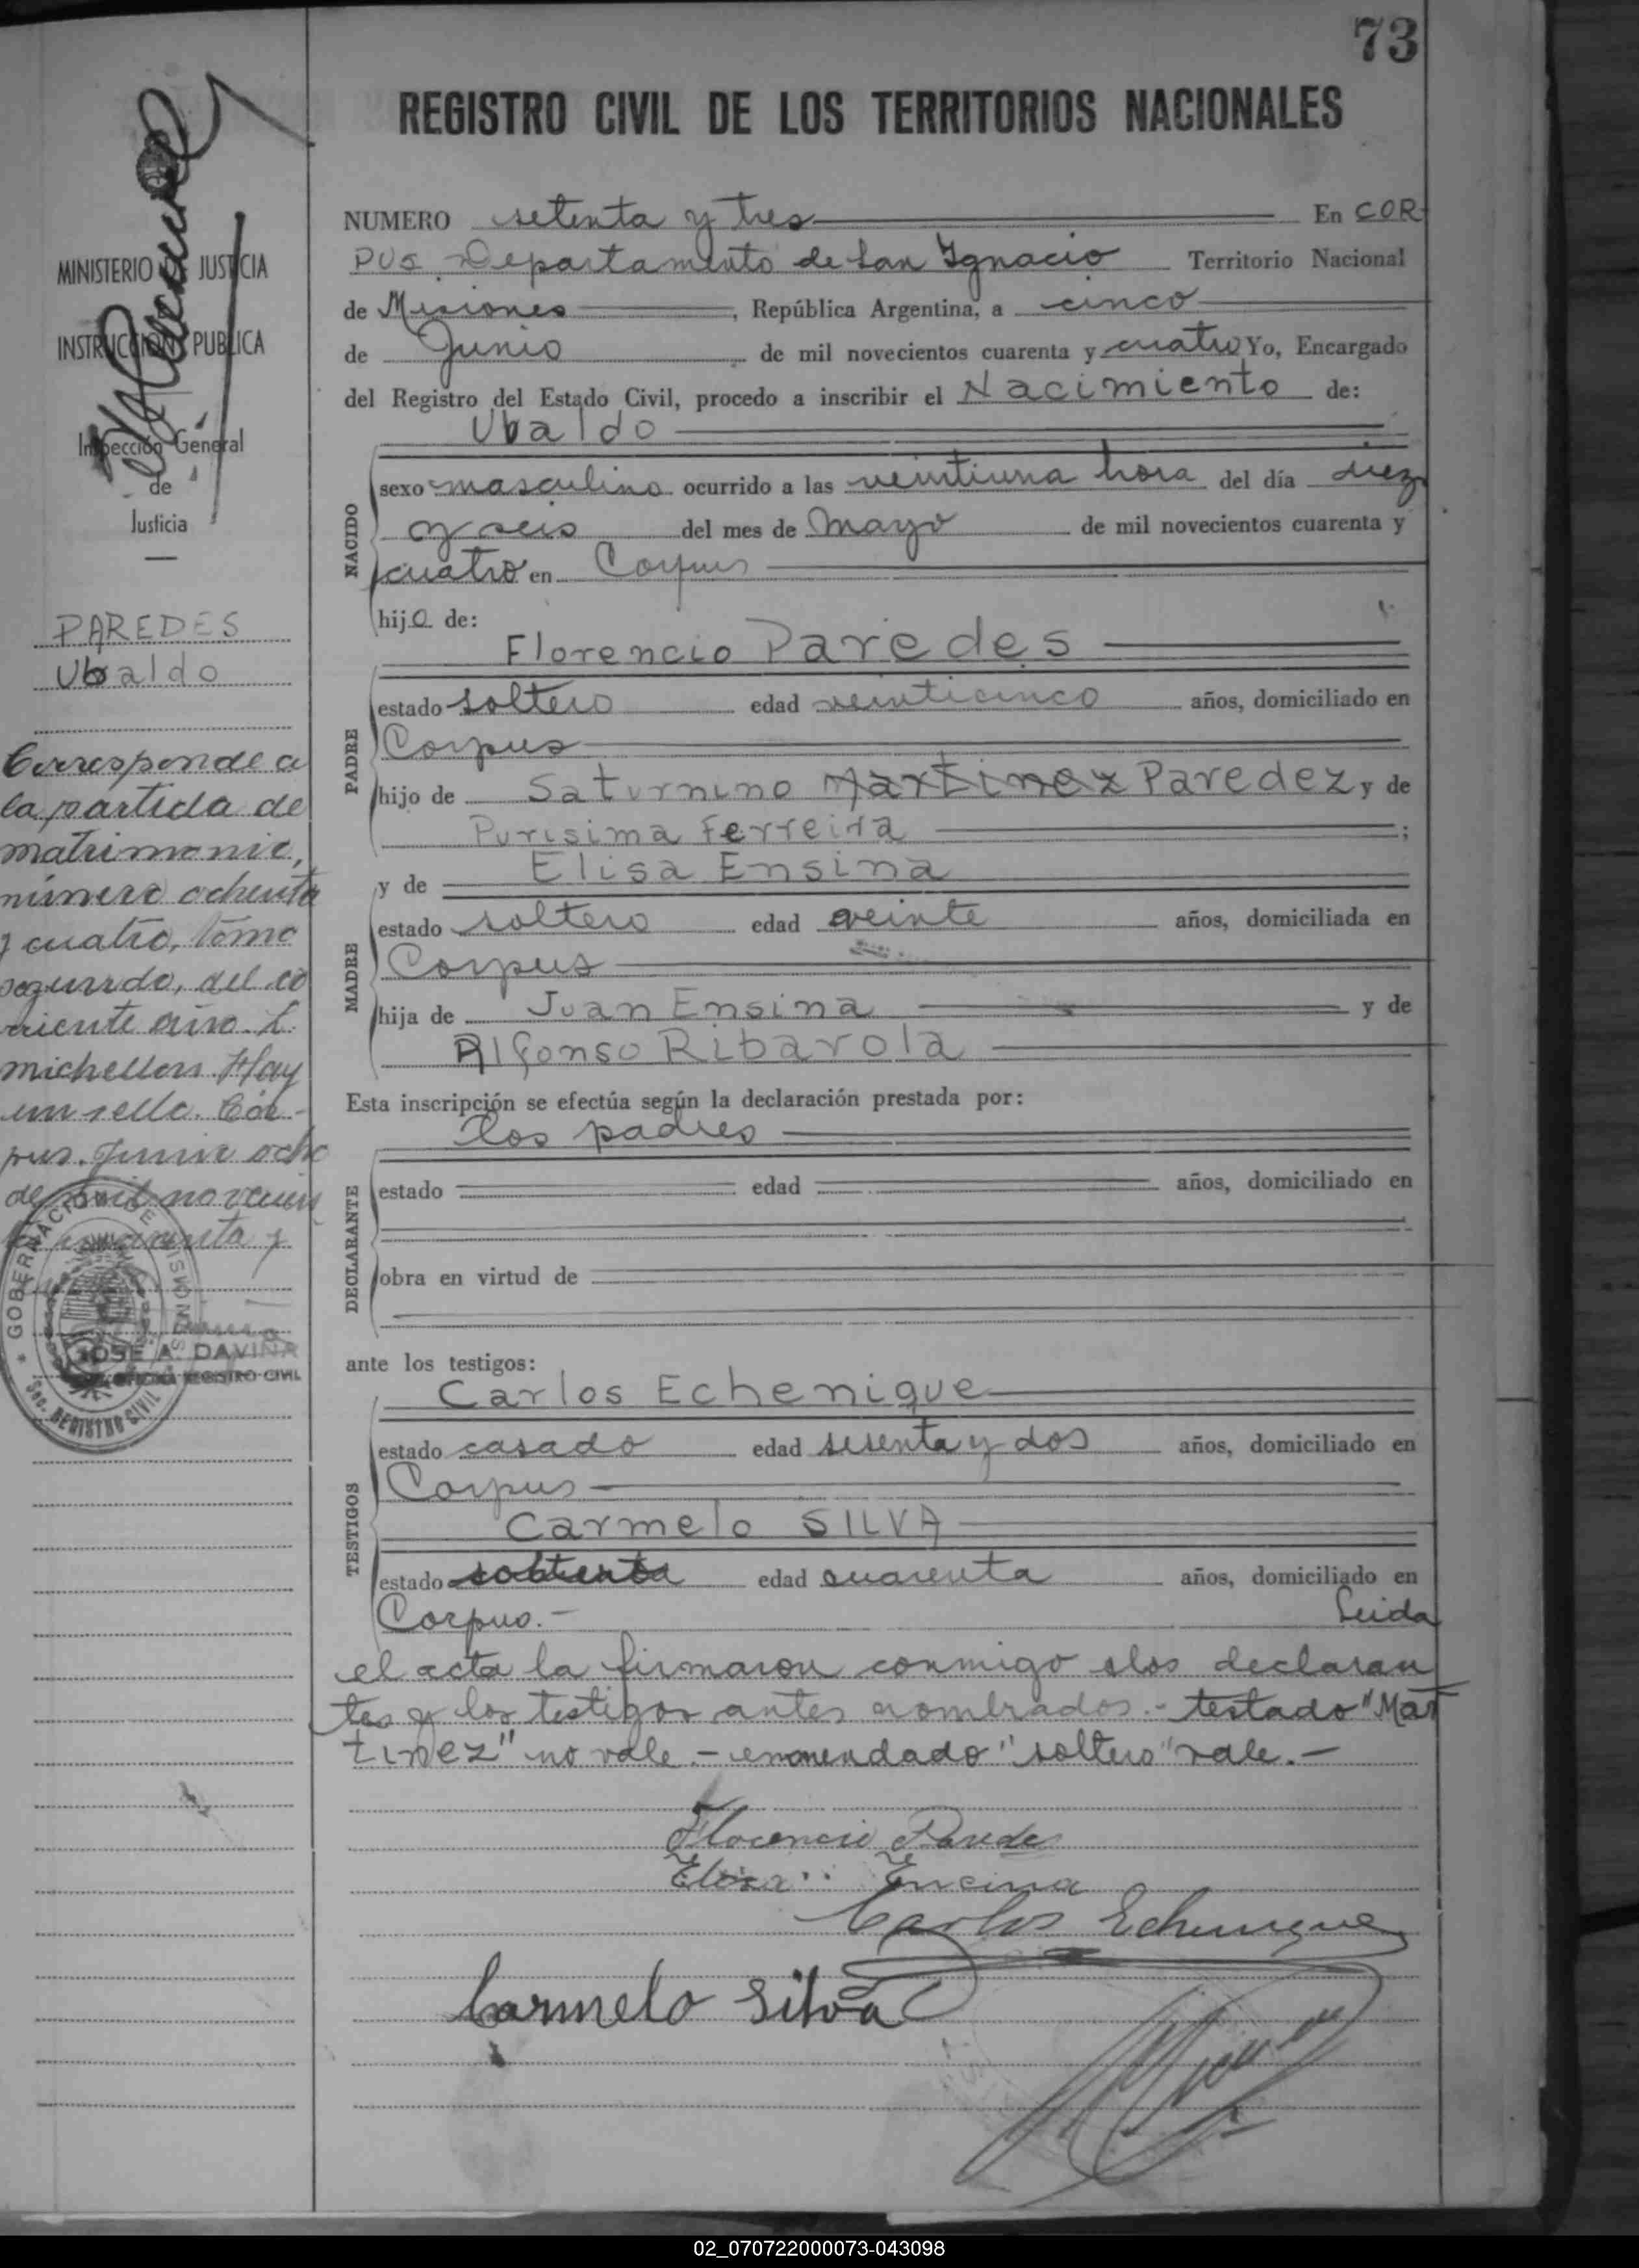 73
REGISTRO CIVIL DE LOS TERRITORIOS NACIONALES
NUMERO setenta y tres En COR
PUS Departamento de San Ignacio Territorio Nacional
de Misiones, República Argentina, a cinco
de Junio de mil novecientos cuarenta y cuatro Yo, Encargado
del Registro del Estado Civil, procedo a inscribir el Nacimiento de:
Ubaldo
NACIDO
sexo masculino ocurrido a las veintiuna hora del día diez
y seis del mes de Mayo de mil novecientos cuarenta y
cuatro en Corpus
hijo de:
Florencio Paredes
PADRE
estado soltero edad veinticinco años, domiciliado en
Corpus
hijo de Saturnino Martinez Paredez y de
Purisima Ferreira ;
y de Elisa Ensina
MADRE
estado soltero edad veinte años, domiciliada en
Corpus
hija de Juan Ensina y de
Alfonso Ribarola
Esta inscripción se efectúa según la declaración prestada por:
los padres
DECLARANTE
estado edad años, domiciliado en
obra en virtud de
ante los testigos:
Carlos Echenique
TESTIGOS
estado casado edad sesenta y dos años, domiciliado en
Corpus
Carmelo SILVA
estado edad cuarenta años, domiciliado en
Corpus.- Leida
el acta la firmaron conmigo los declaran
tes y los testigos antes nombrados.- testado "Mar
tinez" no vale.- enmendado "soltero" vale.-
Florencio Paredes
Elisa Encina
Carlos Echenique
Carmelo Silva
MINISTERIO DE JUSTICIA
INSTRUCCIÓN PUBLICA
Inspección General
de
Justicia
PAREDES
Ubaldo
Corresponde a
la partida de
matrimonio,
número ochenta
y cuatro, tomo
segundo, del co
rriente año. L.
michellon. Hay
un sello. Cor-
pus. Junio ocho
de mil novecien
tos cuarenta y
GOBERNACION DE MISIONES
JOSE A. DAVIÑA
OFICINA REGISTRO CIVIL
Sec. REGISTRO CIVIL
02_070722000073-043098